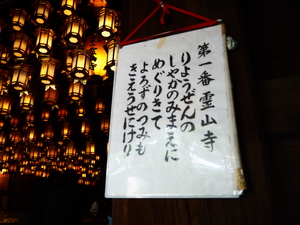 第一番霊山寺
りょうぜんの
しゃかのみまえに
めぐりきて
よろずのつみも
きえうせにけり